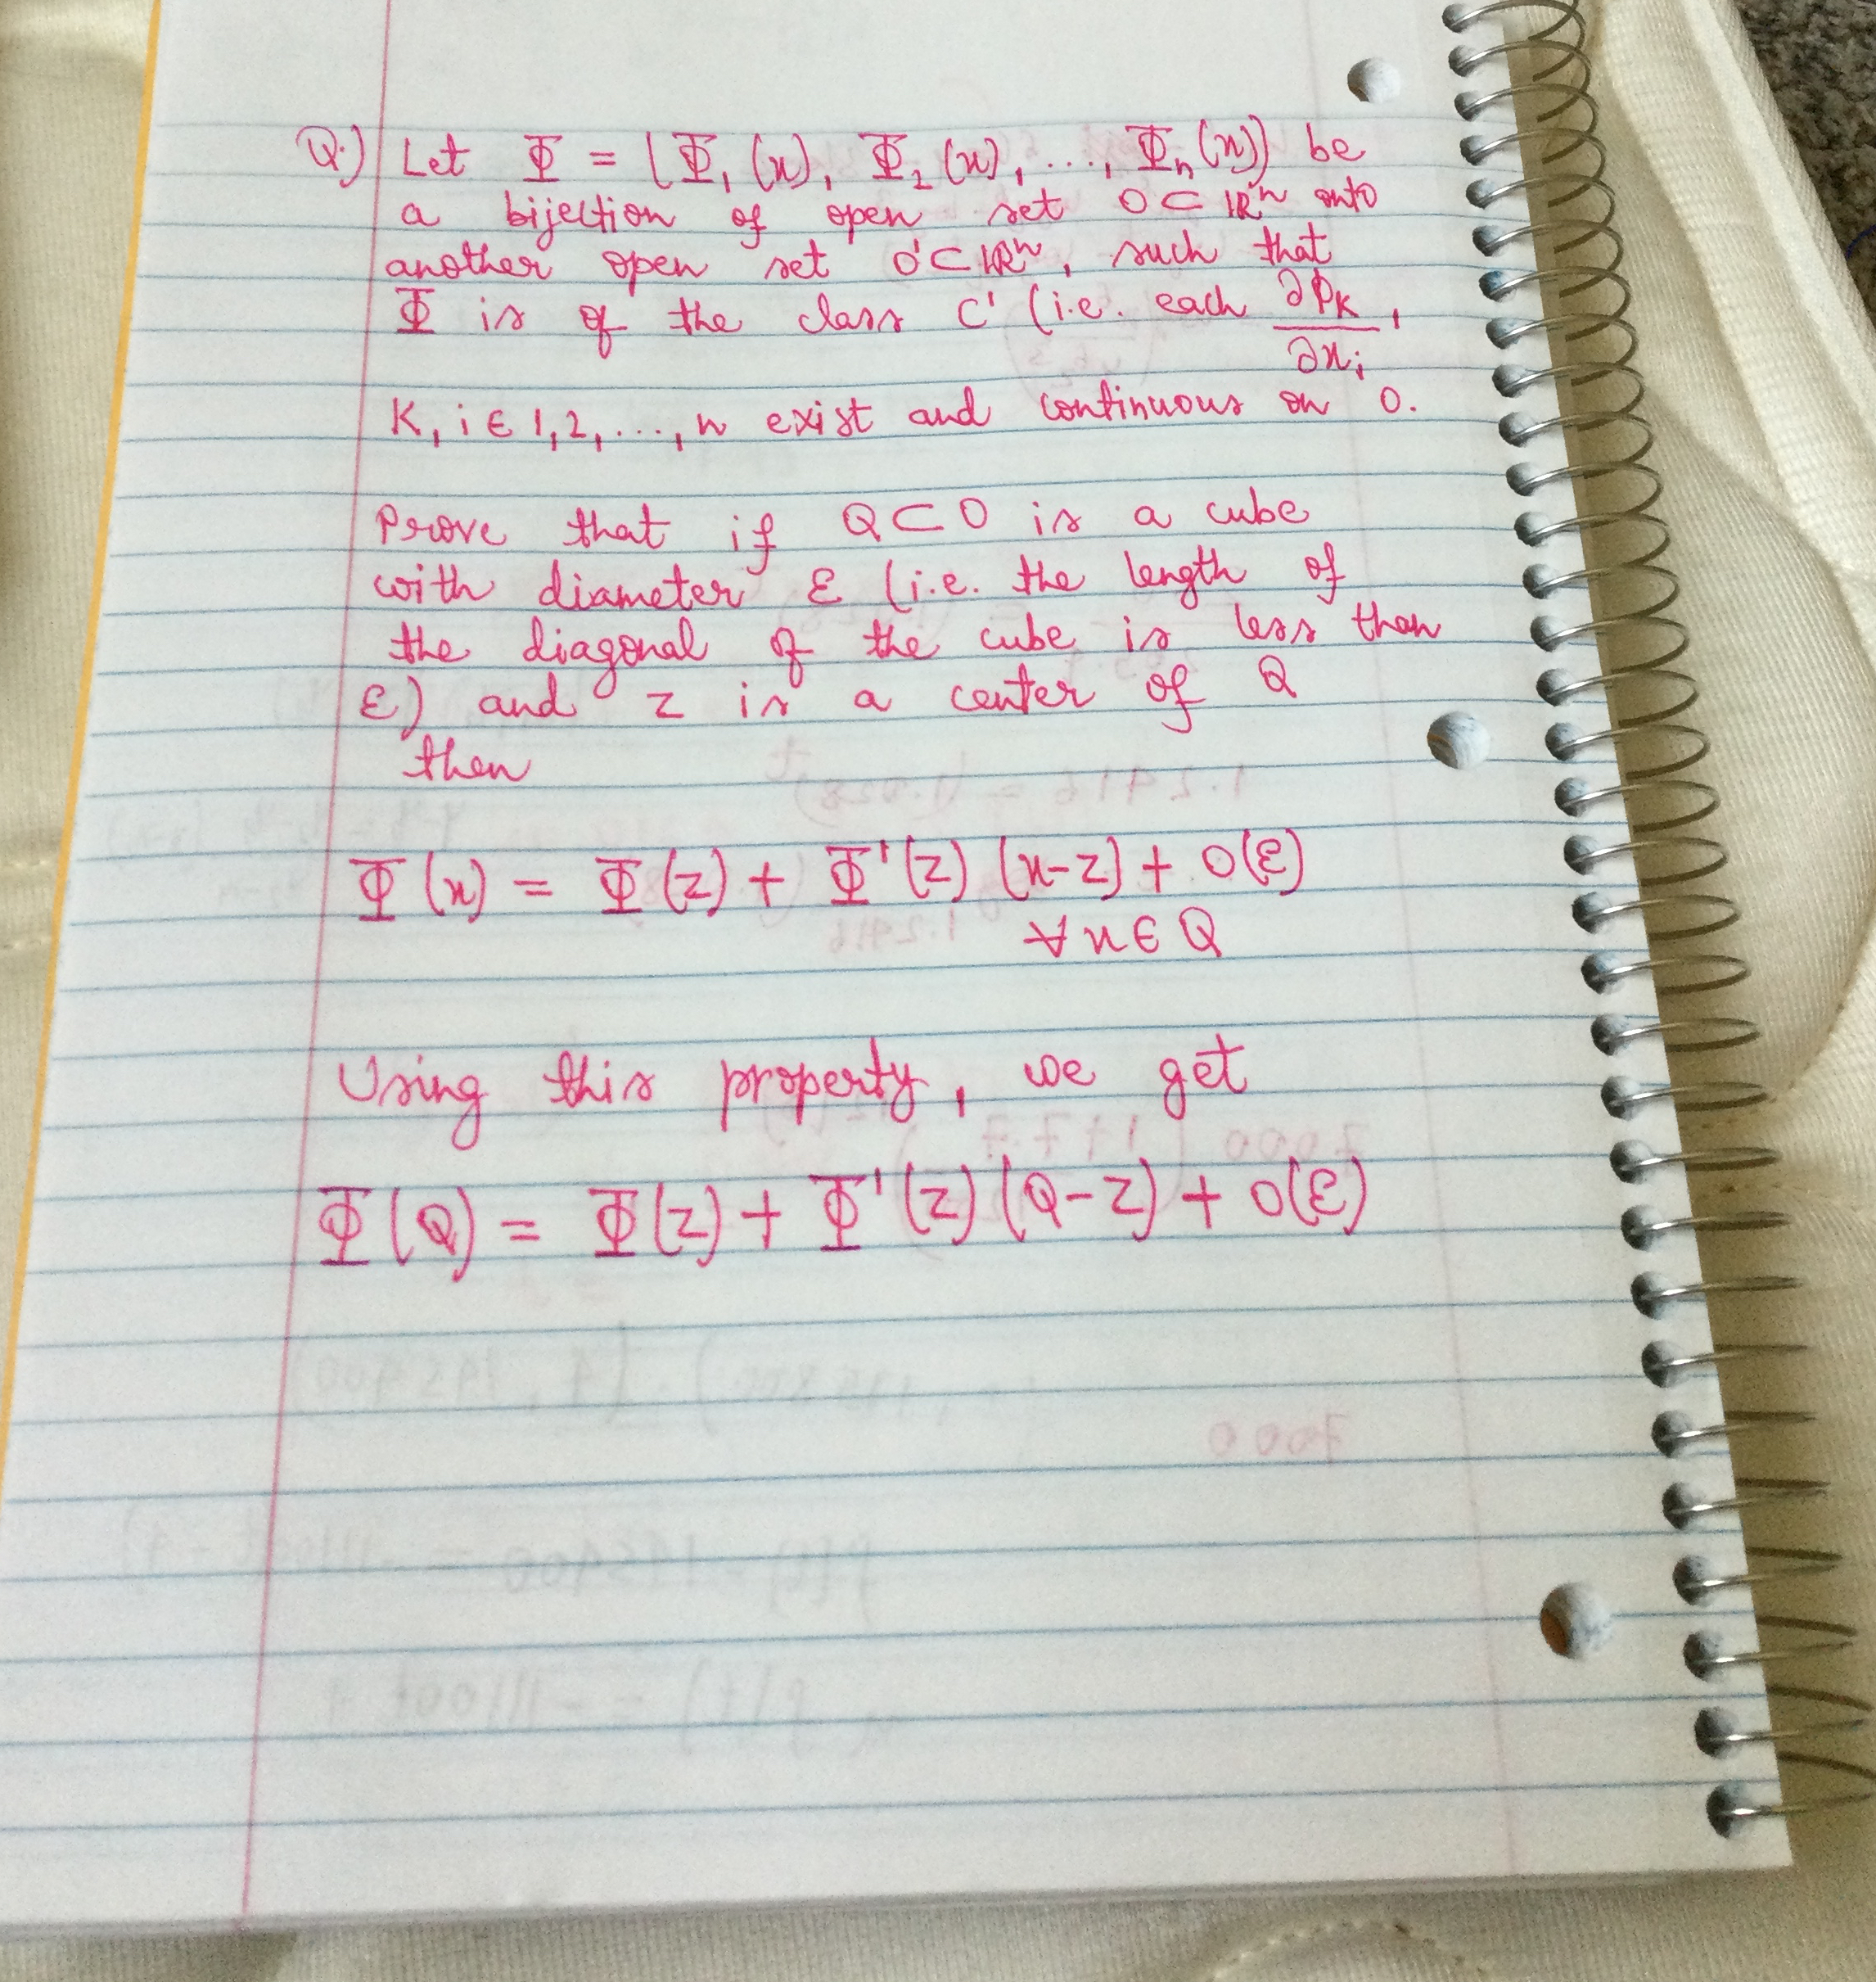 Q.) Let Φ = (Φ₁(x), Φ₂(x), ..., Φₙ(x)) be
a bijection of open set O ⊂ ℝⁿ onto
another open set O' ⊂ ℝⁿ, such that
Φ is of the class C' (i.e. each ∂φ_K/∂x_i,
K, i ∈ 1,2,...,n exist and continuous on O.
Prove that if Q ⊂ O is a cube
with diameter ε (i.e. the length of
the diagonal of the cube is less than
ε) and z is a center of Q
then
Φ(x) = Φ(z) + Φ'(z) (x-z) + o(ε)
∀ x ∈ Q
Using this property, we get
Φ(Q) = Φ(z) + Φ'(z) (Q-z) + o(ε)